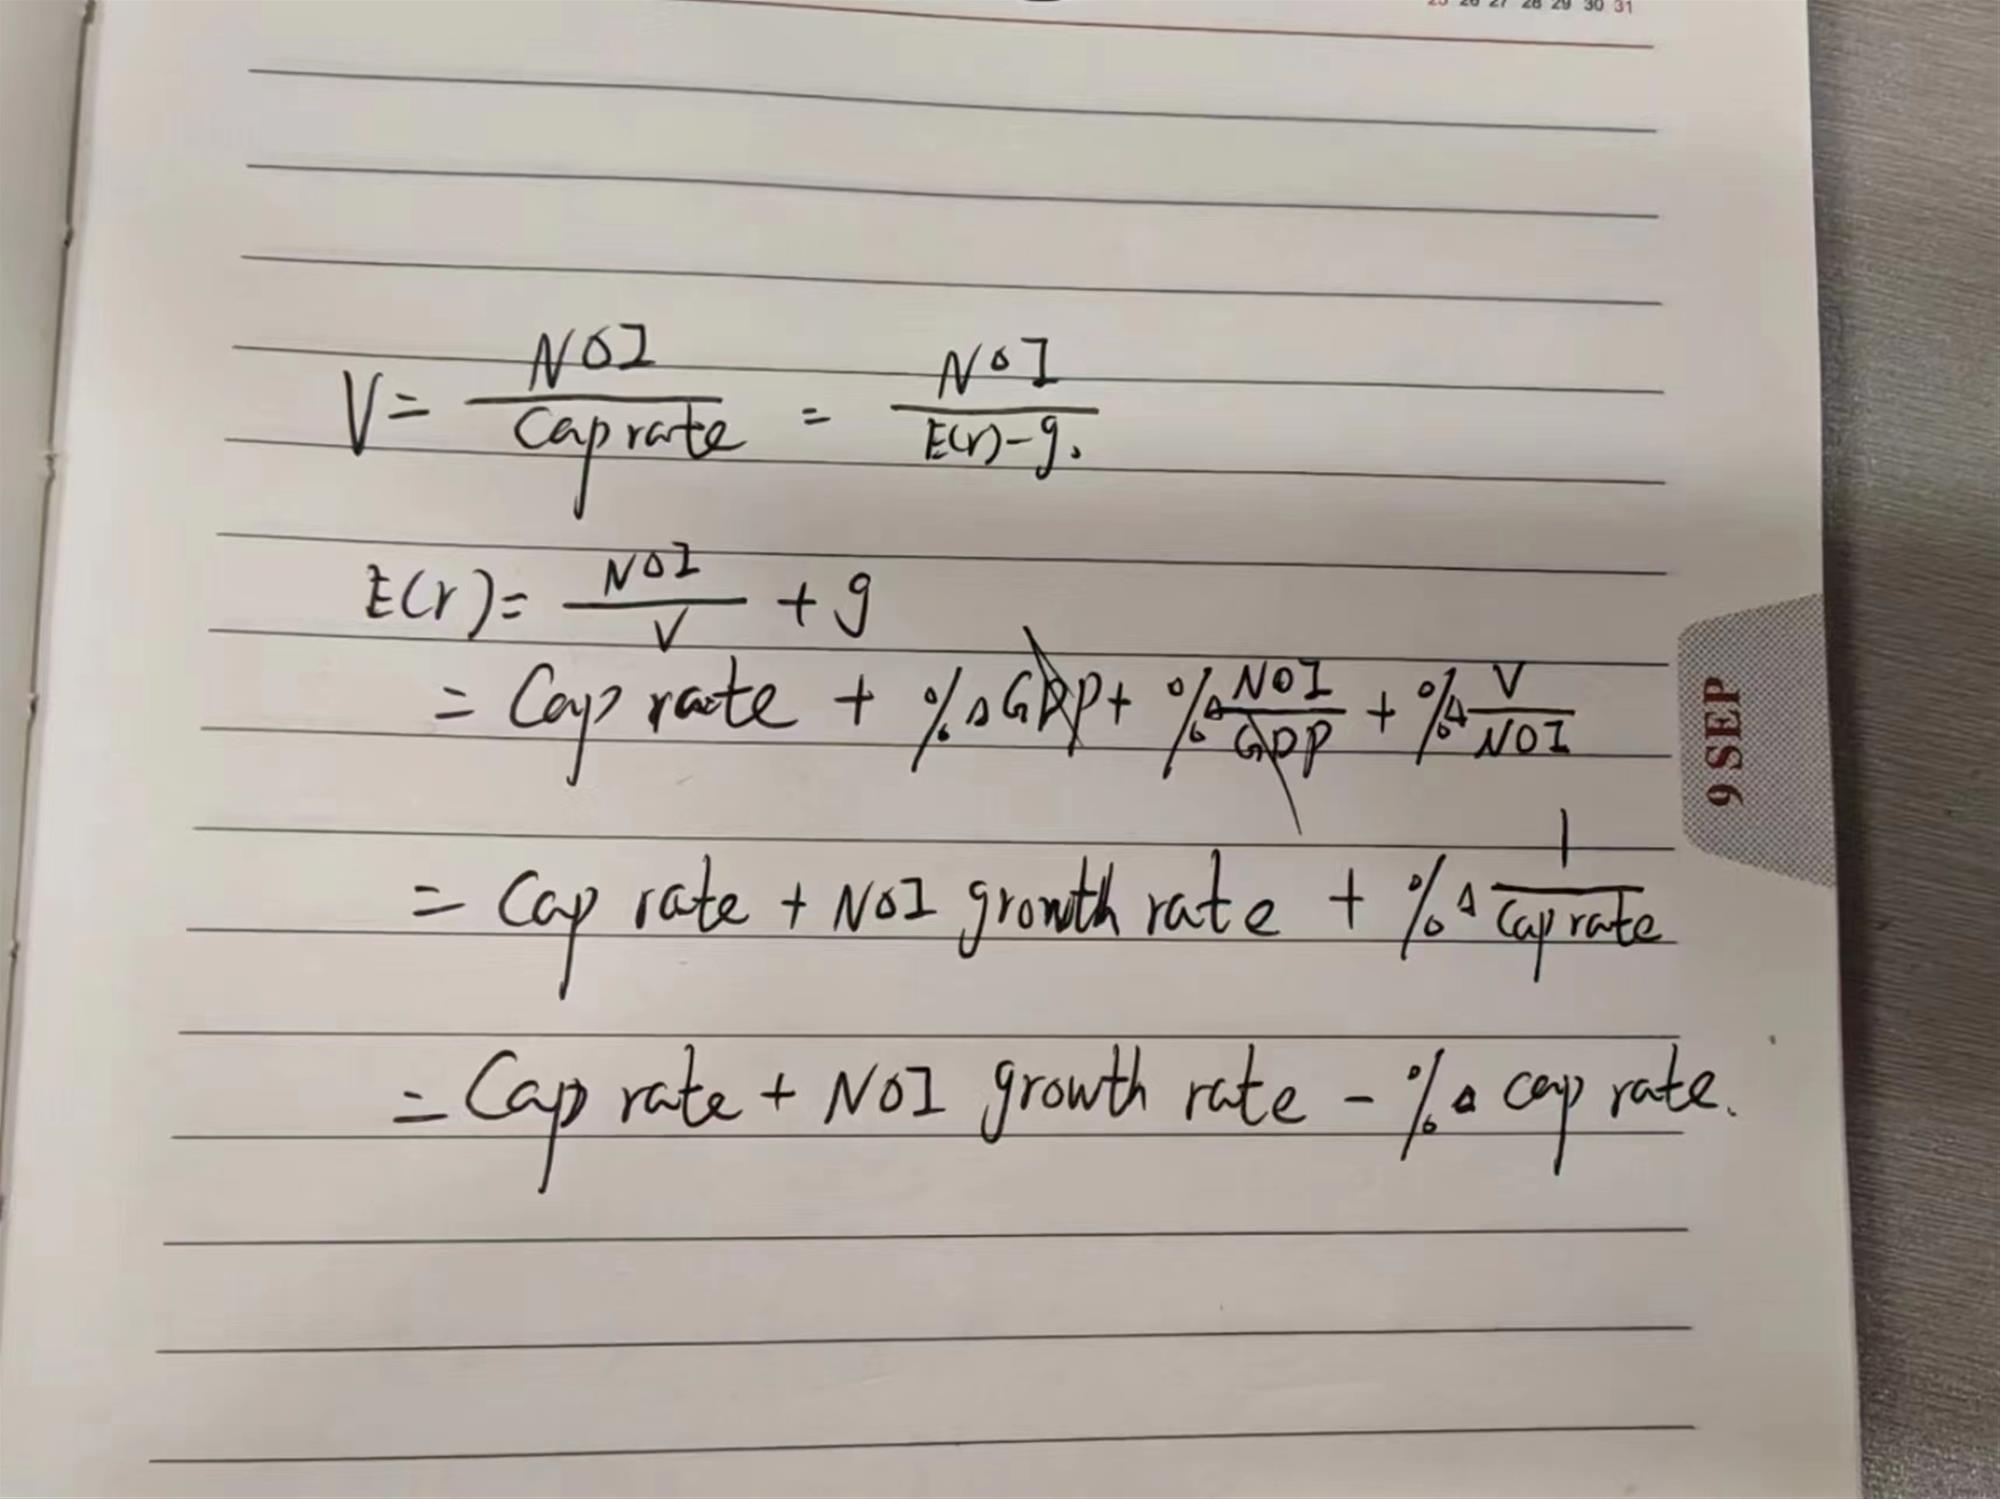 25 26 27 28 29 30 31
V = NOI / Cap rate = NOI / E(r) - g.
E(r) = NOI / V + g
= Cap rate + %ΔGDP + %Δ NOI / GDP + %Δ V / NOI
= Cap rate + NOI growth rate + %Δ 1 / Cap rate
= Cap rate + NOI growth rate - %Δ cap rate.
9 SEP